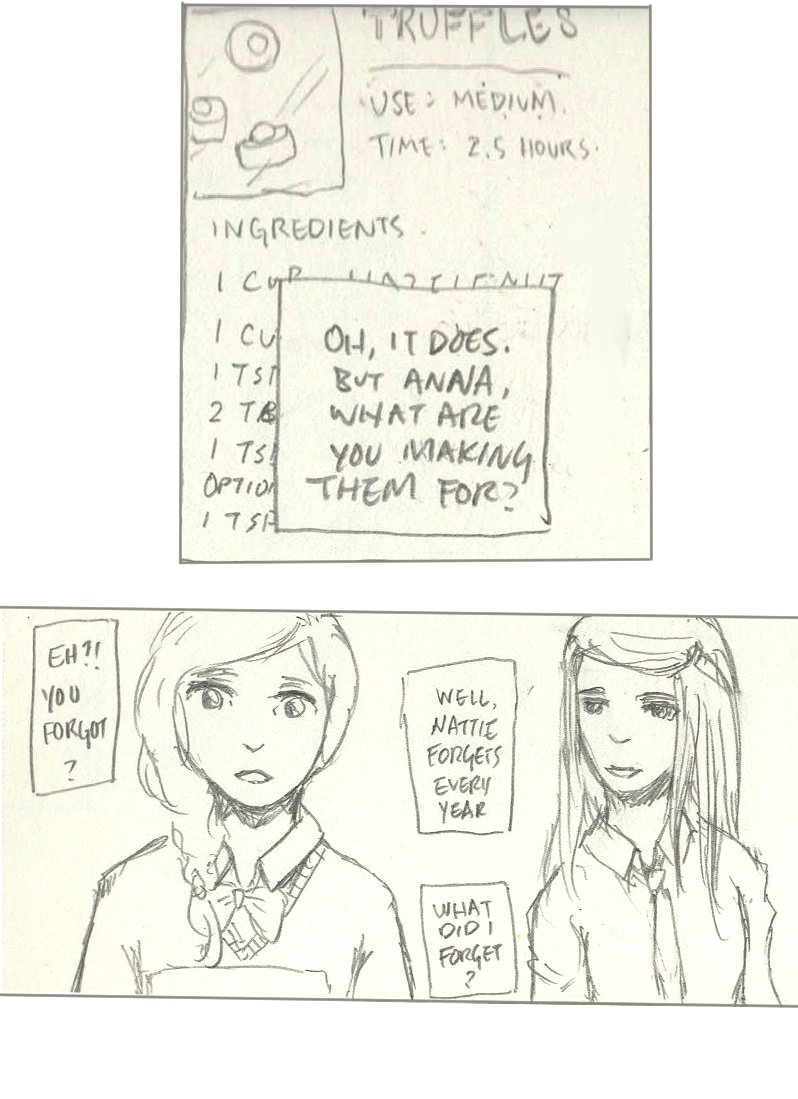 TRUFFLES
USE: MEDIUM.
TIME: 2.5 HOURS.
INGREDIENTS.
1 CUP HAZELNUT
1 CU
1 TSP
2 TB
1 TS
OPTION
1 TSP
OH, IT DOES.
BUT ANNA,
WHAT ARE
YOU MAKING
THEM FOR?
EH?!
YOU
FORGOT
?
WELL,
NATTIE
FORGETS
EVERY
YEAR
WHAT
DID I
FORGET
?